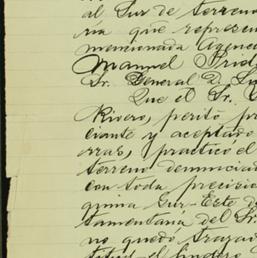 al Sur de terreno
ria que represen
mencionada Agenc
Manuel
Sr. General D.
Que el Sr.
Rivero, perito p
ciante y aceptado
rras, practicó el
terreno denuncia
con toda precisi
quina Sur-Este d
tamentaria del Sr.
no quedó trazad
el lindero